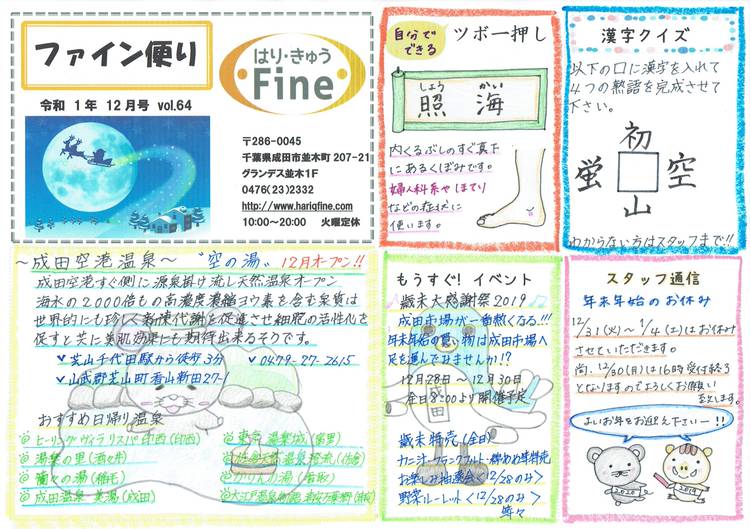 ファイン便り
はり・きゅう
Fine
令和 1年 12月号 vol.64
〒286-0045
千葉県成田市並木町 207-21
グランデス並木1F
0476(23)2332
http://www.hariqfine.com
10:00～20:00 火曜定休
自分で
できる
ツボー押し
しょう かい
照 海
内くるぶしのすぐ真下
にあるくぼみです。
婦人科系やほてり
などの症状に
使います。
漢字クイズ
以下の口に漢字を入れて
4つの熟語を完成させて
下さい。
初
蛍 空
山
わからない方はスタッフまで!!
～成田空港温泉～ "空の湯" 12月オープン!!
成田空港すぐ側に源泉掛け流し天然温泉オープン
海水の2000倍もの高濃度濃縮ヨウ素を含む泉質は
世界的にも珍しく新陳代謝を促進させ細胞の活性化を
促すと共に美肌効果にも期待出来るそうです。
芝山千代田駅から徒歩3分
0479-27-2615
山武郡芝山町香山新田27-1
おすすめ日帰り温泉
ヒーリングヴィラリスパ印西(印西)
湯楽の里(酒々井)
成田温泉 美湯(成田)
もうすぐ! イベント
歳末大感謝祭2019
成田市場が一番熱くなる!!!
年末年始の買い物は成田市場へ
足を運んでみませんか!?
12月28日～12月30日
全日8:00より開催予定
成田
歳末特売(全日)
お楽しみ抽選会<12/28のみ>
野菜ルーレット<12/28のみ>
等々
スタッフ通信
年末年始のお休み
12/31(火)～1/4(土)はお休み
させていただきます。
尚、12/30(月)は16時受付終了
となりますのでよろしくお願い
致します。
よいお年をお迎え下さいー!!
2020
2019